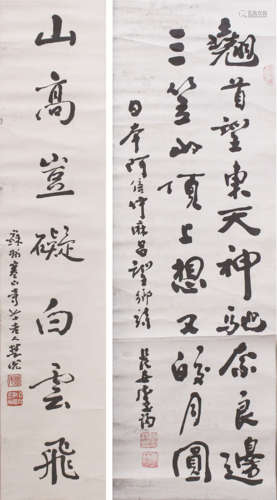 翹首望東天神馳奈良邊
三笠山頂上想又皎月圓
日本阿倍仲麻呂望鄉詩
長安
山高豈礙白雲飛
蘇州寒山寺